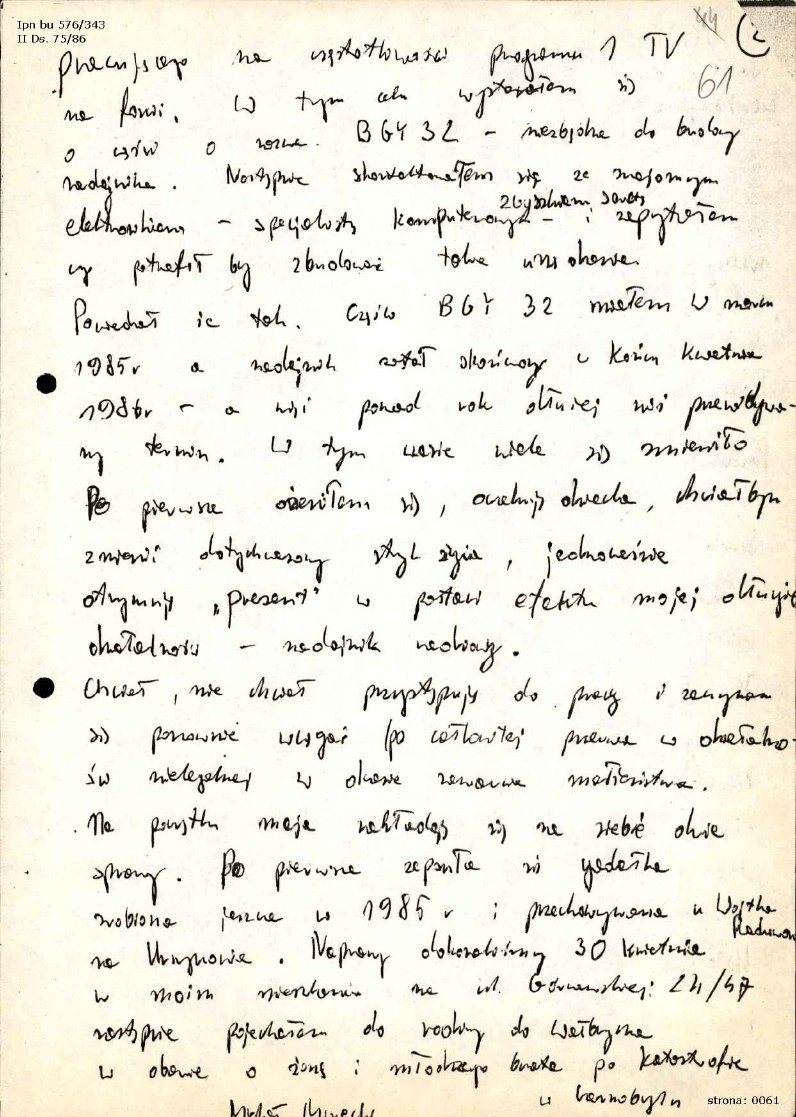 Ipn bu 576/343
II Ds. 75/86
44
61
pracującego na częstotliwości programu 1 TV
na fonii. W tym celu wystarałem się
o części o nazwie BGY 32 – niezbędne do budowy
nadajnika. Następnie skontaktowałem się ze znajomym
elektronikiem – specjalistą komputerowym – i zapytałem
Zbyszkiem
czy potrafił by zbudować takie urządzenie
Powiedział że tak. Części BGY 32 miałem w marcu
1985r a nadajnik został skończony w końcu kwietnia
1986r – a więc ponad rok dłużej niż przewidywa-
ny termin. W tym czasie wiele się zmieniło
Po pierwsze ożeniłem się, oczekuję dziecka, chciałbym
zmienić dotychczasowy styl życia, jednocześnie
otrzymuję „prezent” w postaci efektu mojej dłuższej
działalności – nadajnik nadawczy.
Chciał, nie chciał przystępuję do pracy i zaczynam
się ponownie wciągać (po całkowitej przerwie w działalno-
ści nielegalnej w okresie zawarcia małżeństwa.
Na początku maja nakładają się na siebie dwie
sprawy. Po pierwsze zepsuta się gadałka
zrobiona jeszcze w 1985 r i przechowywana u Wojtka
na Ursynowie. Naprawy dokonaliśmy 30 kwietnia
w moim mieszkaniu na ul. 24/47
następnie pojechałem do rodziny do Wałbrzycha
w obawie o żonę i młodszego brata po katastrofie
w Czarnobylu
strona: 0061